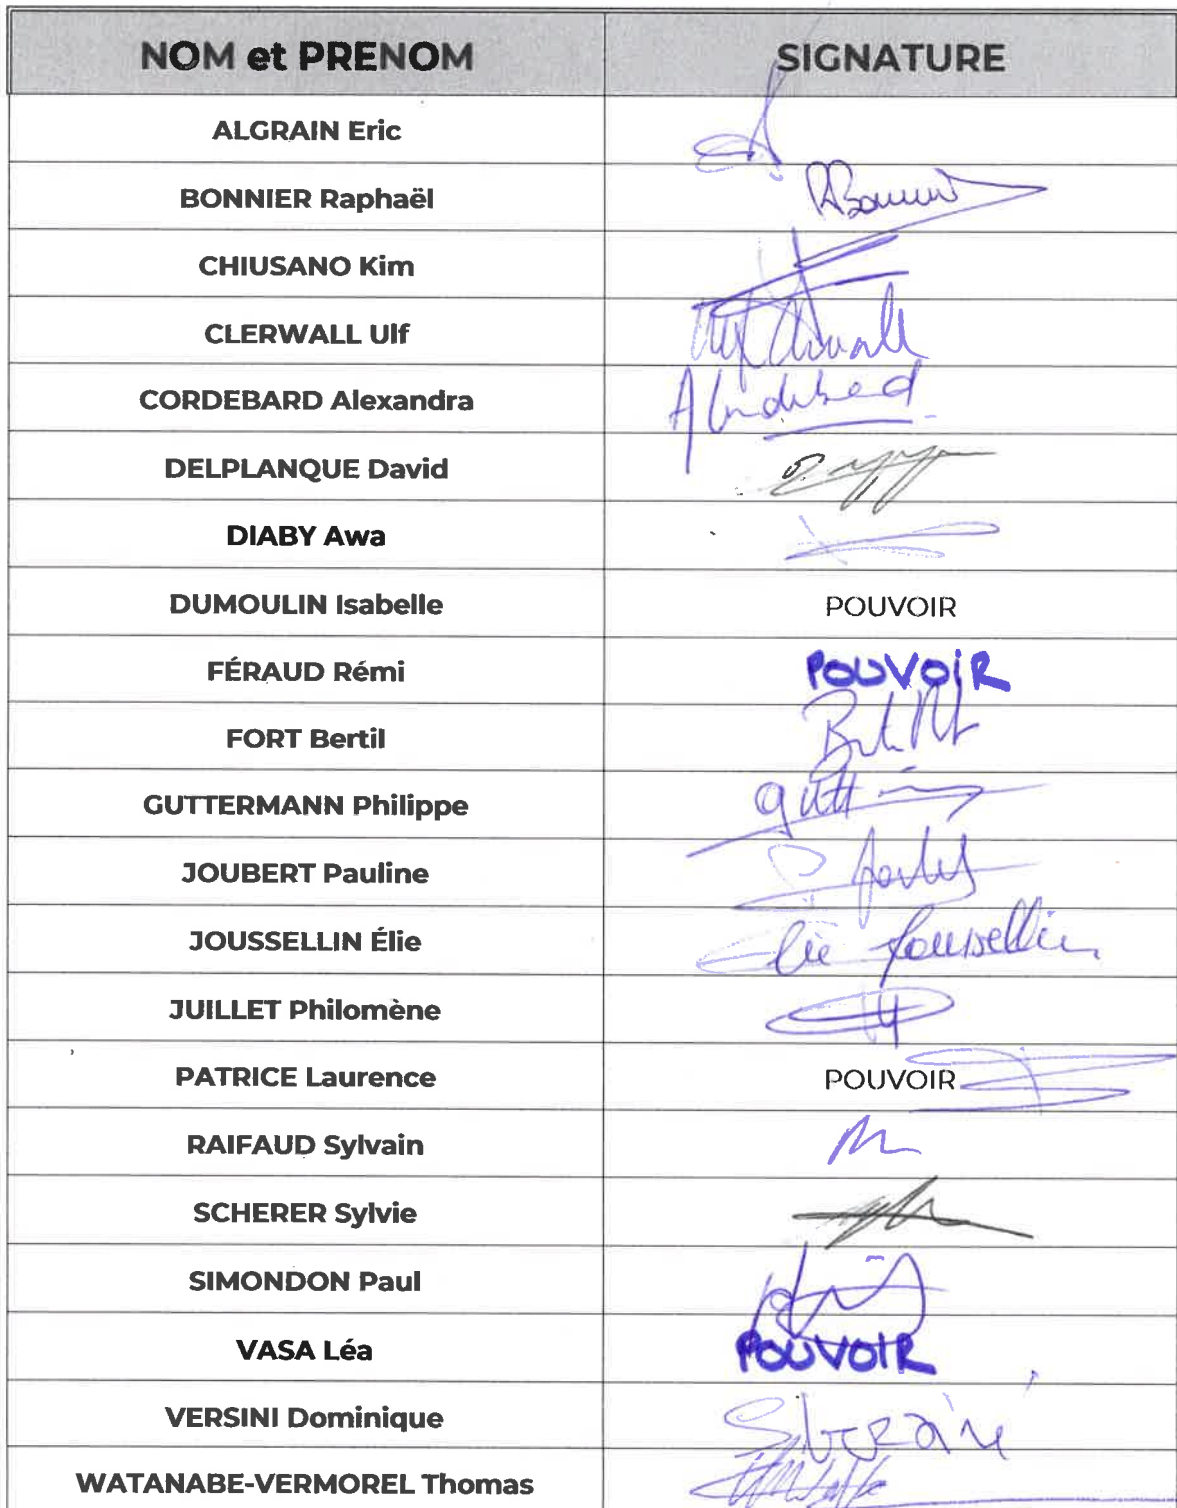 NOM et PRENOM SIGNATURE
ALGRAIN Eric
BONNIER Raphaël RBonnier
CHIUSANO Kim
CLERWALL Ulf Ulf Clerwall
CORDEBARD Alexandra ACordebard
DELPLANQUE David
DIABY Awa
DUMOULIN Isabelle POUVOIR
FÉRAUD Rémi POUVOIR
FORT Bertil
GUTTERMANN Philippe
JOUBERT Pauline
JOUSSELLIN Élie Elie Joussellin
JUILLET Philomène
PATRICE Laurence POUVOIR
RAIFAUD Sylvain
SCHERER Sylvie
SIMONDON Paul
VASA Léa POUVOIR
VERSINI Dominique
WATANABE-VERMOREL Thomas